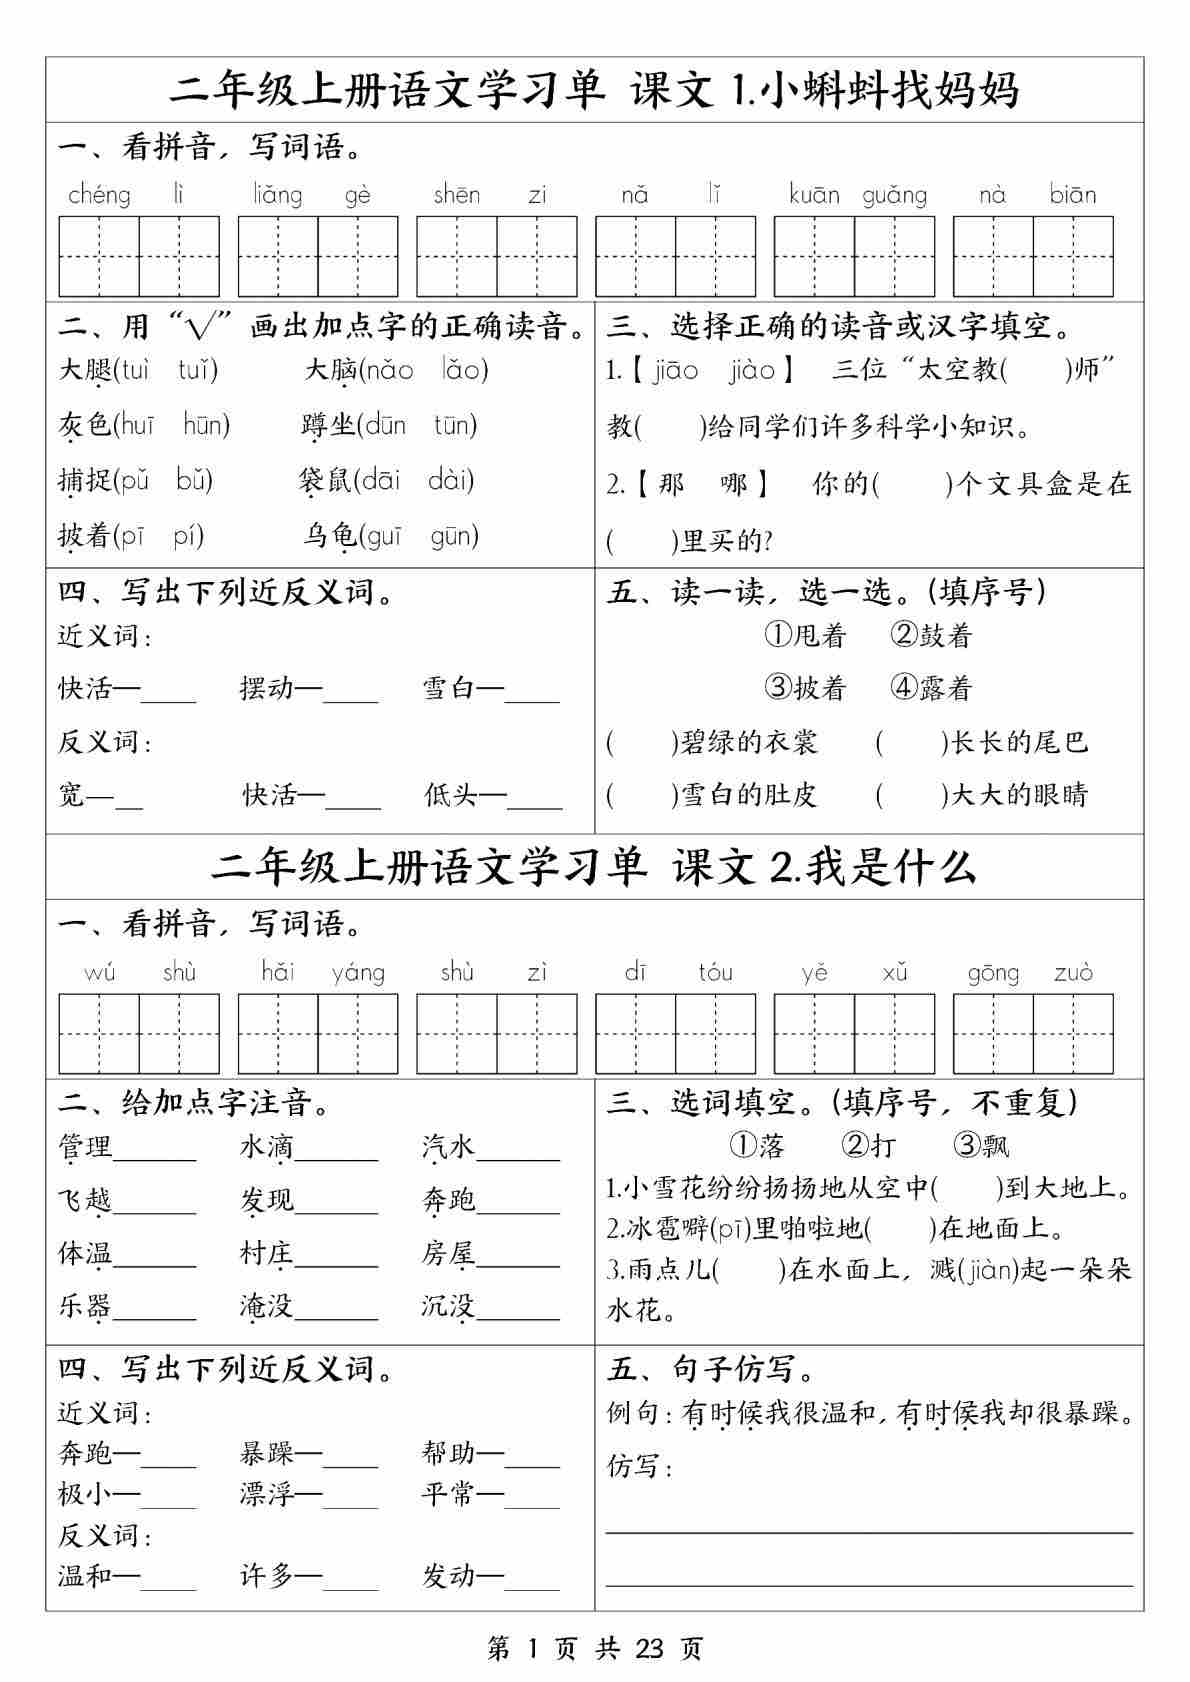 二年级上册语文学习单 课文 1.小蝌蚪找妈妈
一、看拼音，写词语。
chéng lì liǎng gè shēn zi nǎ lǐ kuān guǎng nà biān
二、用“√”画出加点字的正确读音。
大腿(tuì tuǐ) 大脑(nǎo lǎo)
灰色(huī hūn) 蹲坐(dūn tūn)
捕捉(pǔ bǔ) 袋鼠(dāi dài)
披着(pī pí) 乌龟(guī gūn)
三、选择正确的读音或汉字填空。
1.【jiāo jiào】 三位“太空教( )师”
教( )给同学们许多科学小知识。
2.【那 哪】 你的( )个文具盒是在
( )里买的?
四、写出下列近反义词。
近义词:
快活—____ 摆动—____ 雪白—____
反义词:
宽—__ 快活—____ 低头—____
五、读一读，选一选。(填序号)
①甩着 ②鼓着
③披着 ④露着
( )碧绿的衣裳 ( )长长的尾巴
( )雪白的肚皮 ( )大大的眼睛
二年级上册语文学习单 课文 2.我是什么
一、看拼音，写词语。
wú shù hǎi yáng shù zì dī tóu yě xǔ gōng zuò
二、给加点字注音。
管理______ 水滴______ 汽水______
飞越______ 发现______ 奔跑______
体温______ 村庄______ 房屋______
乐器______ 淹没______ 沉没______
三、选词填空。(填序号，不重复)
①落 ②打 ③飘
1.小雪花纷纷扬扬地从空中( )到大地上。
2.冰雹噼(pī)里啪啦地( )在地面上。
3.雨点儿( )在水面上，溅(jiàn)起一朵朵
水花。
四、写出下列近反义词。
近义词:
奔跑—____ 暴躁—____ 帮助—____
极小—____ 漂浮—____ 平常—____
反义词:
温和—____ 许多—____ 发动—____
五、句子仿写。
例句:有时候我很温和,有时侯我却很暴躁。
仿写:
第 1 页 共 23 页